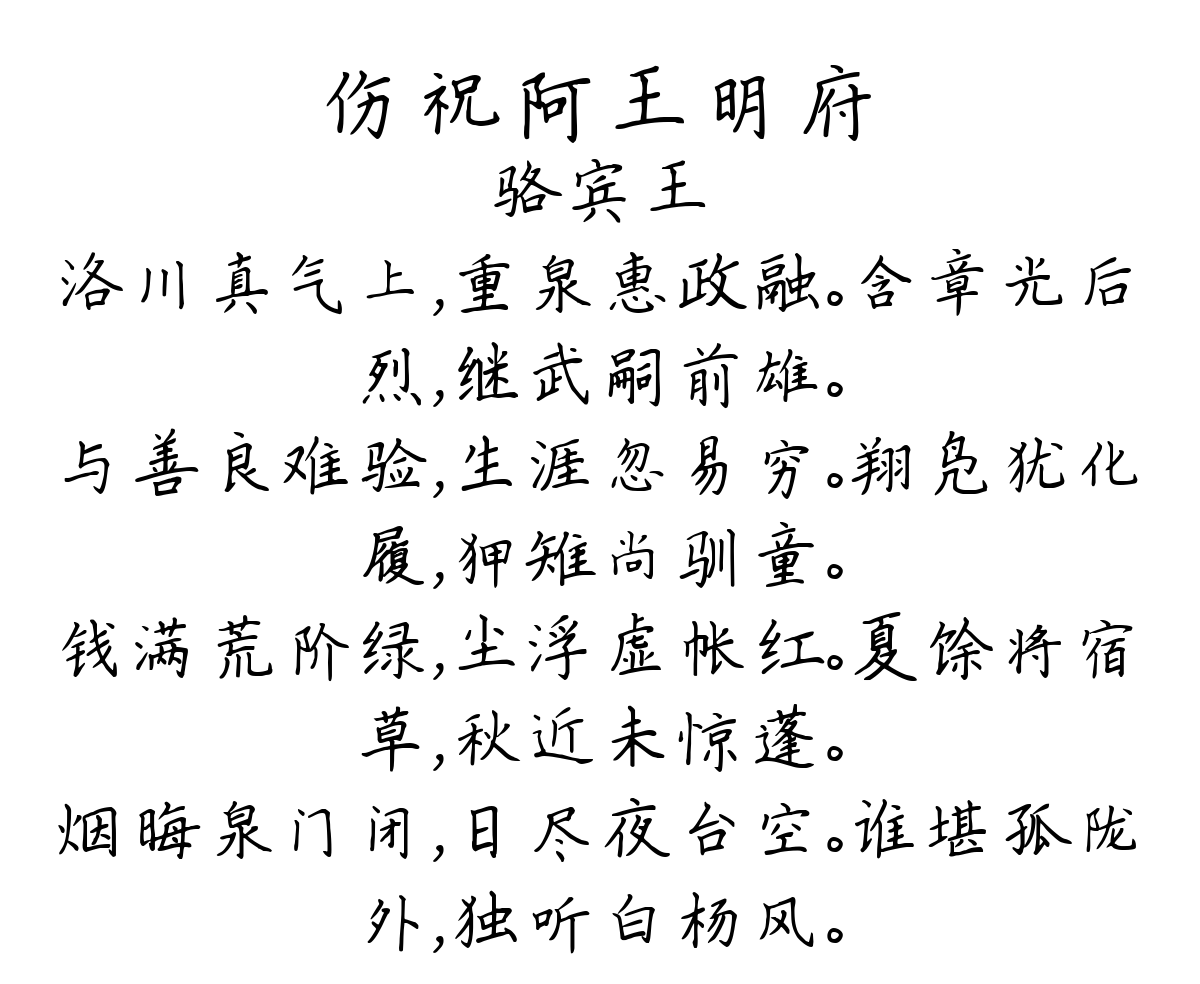 伤祝阿王明府
骆宾王
洛川真气上,重泉惠政融。含章光后
烈,继武嗣前雄。
与善良难验,生涯忽易穷。翔凫犹化
履,狎雉尚驯童。
钱满荒阶绿,尘浮虚帐红。夏馀将宿
草,秋近未惊蓬。
烟晦泉门闭,日尽夜台空。谁堪孤陇
外,独听白杨风。